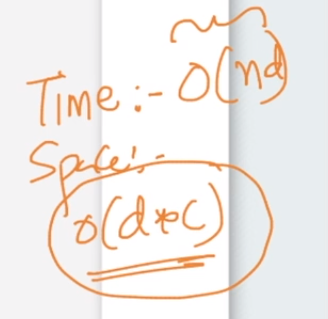 Time :- O(nd)
Space :-
O(d*c)